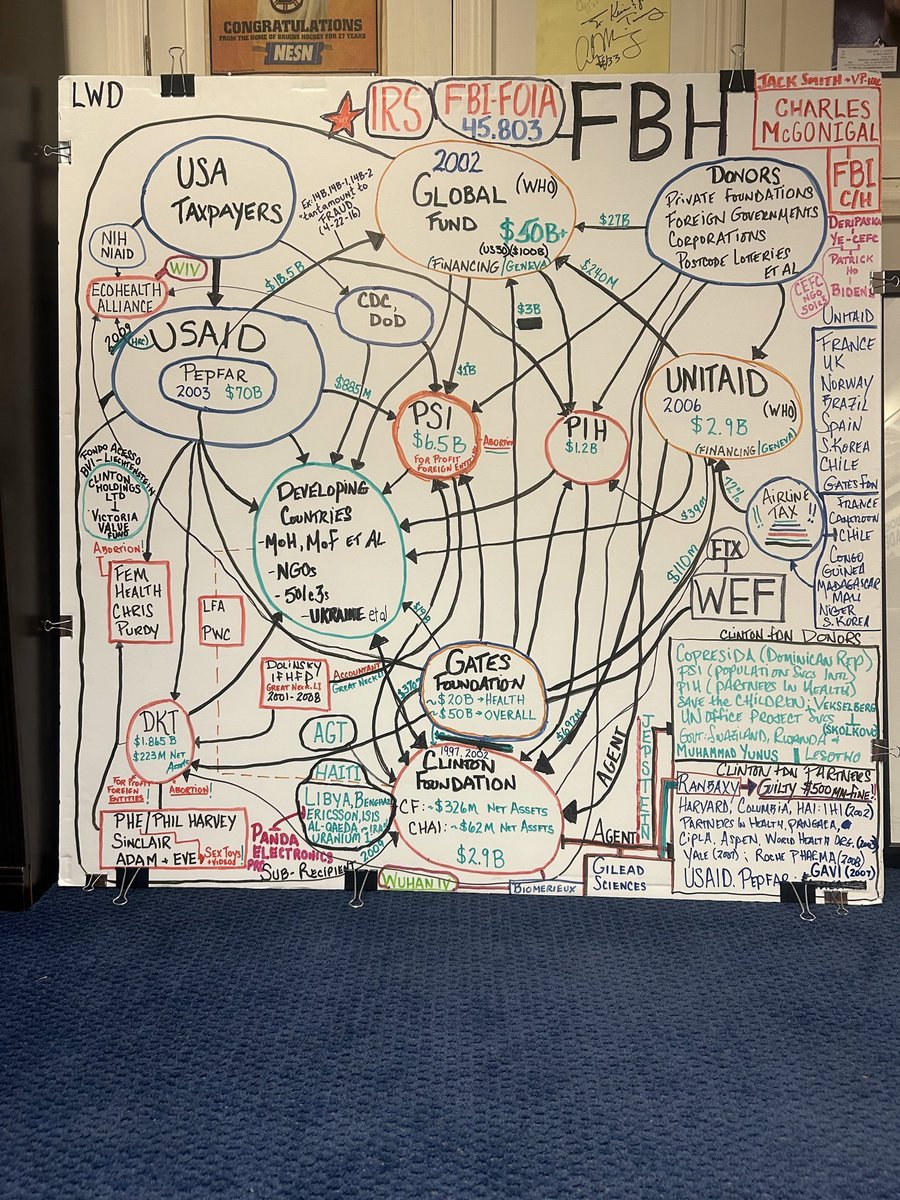 CONGRATULATIONS
FROM THE HOME OF BRUINS HOCKEY FOR 27 YEARS
NESN
#33
LWD
IRS
FBI-FOIA
45.803
FBH
JACK SMITH - VP-
CHARLES
McGONIGAL
FBI
C/H
DERIPASKA
YE-CEFC
PATRICK
HO
BIDENS
CEFC
NGO
501c3
USA
TAXPAYERS
Ex: 14B, 14B-1, 14B-2
"tantamount to
FRAUD"
(4-22-16)
2002
GLOBAL
FUND
(WHO)
$50B+
(US30)($100B)
(FINANCING/GENEVA)
$27B
DONORS
PRIVATE FOUNDATIONS
FOREIGN GOVERNMENTS
CORPORATIONS
POSTCODE LOTTERIES
ET AL
NIH
NIAID
WIV
ECOHEALTH
ALLIANCE
$18.5B
$240M
$3B
CDC,
DOD
2009
(HRC)
USAID
PEPFAR
2003 $70B
$885M
$1B
PSI
$6.5B
FOR PROFIT
FOREIGN ENTITIES
ABORTION
PIH
$1.2B
UNITAID
2006
(WHO)
$2.9B
(FINANCING/GENEVA)
UNITAID
FRANCE
UK
NORWAY
BRAZIL
SPAIN
S.KOREA
CHILE
GATES FDN
FRANCE
CAMEROON
CHILE
CONGO
GUINEA
MADAGASCAR
MALI
NIGER
S.KOREA
FONDO ACESSO
BVI-LIECHTENSTEIN
CLINTON
HOLDINGS
LTD
VICTORIA
VALUE
FUND
ABORTION!
FEM
HEALTH
CHRIS
PURDY
DEVELOPING
COUNTRIES
-MOH, MOF ET AL
-NGOS
-501c3s
-UKRAINE et al
LFA
PWC
$39M
72%
AIRLINE
TAX
$110M
FTX
WEF
DOLINSKY
IFHFP
GREAT NECK, LI
2001-2008
ACCOUNTANT
GREAT NECK LI
GATES
FOUNDATION
~$20B → HEALTH
~$50B → OVERALL
$692M
AGENT
JEPSTEIN
CLINTON FDN DONORS
COPRESIDA (DOMINICAN REP)
PSI (POPULATION SVCS INTL)
PIH (PARTNERS IN HEALTH)
SAVE THE CHILDREN; VEKSELBERG
UN OFFICE PROJECT SVCS
(SKOLKOVO)
GOVT: SWAZILAND, RWANDA &
MUHAMMAD YUNUS LESOTHO
DKT
$1.865 B
$223M NET
ASSETS
FOR PROFIT
FOREIGN
ENTITIES
ABORTION!
AGT
HAITI
LIBYA, BENGHAZI
ERICSSON, ISIS
AL-QAEDA
URANIUM 1
2009
1997, 2002
CLINTON
FOUNDATION
CF: ~$326M NET ASSETS
CHAI: ~$62M NET ASSETS
$2.9B
AGENT
PHE/PHIL HARVEY
SINCLAIR
ADAM + EVE
SEX TOYS!
+ VIDEOS!
PANDA
ELECTRONICS
PRC
SUB-RECIPIENT
WUHAN IV
BIOMERIEUX
GILEAD
SCIENCES
CLINTON FDN PARTNERS
RANBAXY → GUILTY $500MM FINE!!
HARVARD, COLUMBIA, HAI: IHI (2002)
PARTNERS IN HEALTH, PANGAEA,
CIPLA, ASPEN, WORLD HEALTH ORG. (2003)
YALE (2007); ROCHE PHARMA (2008)
USAID. PEPFAR. GAVI (2007)